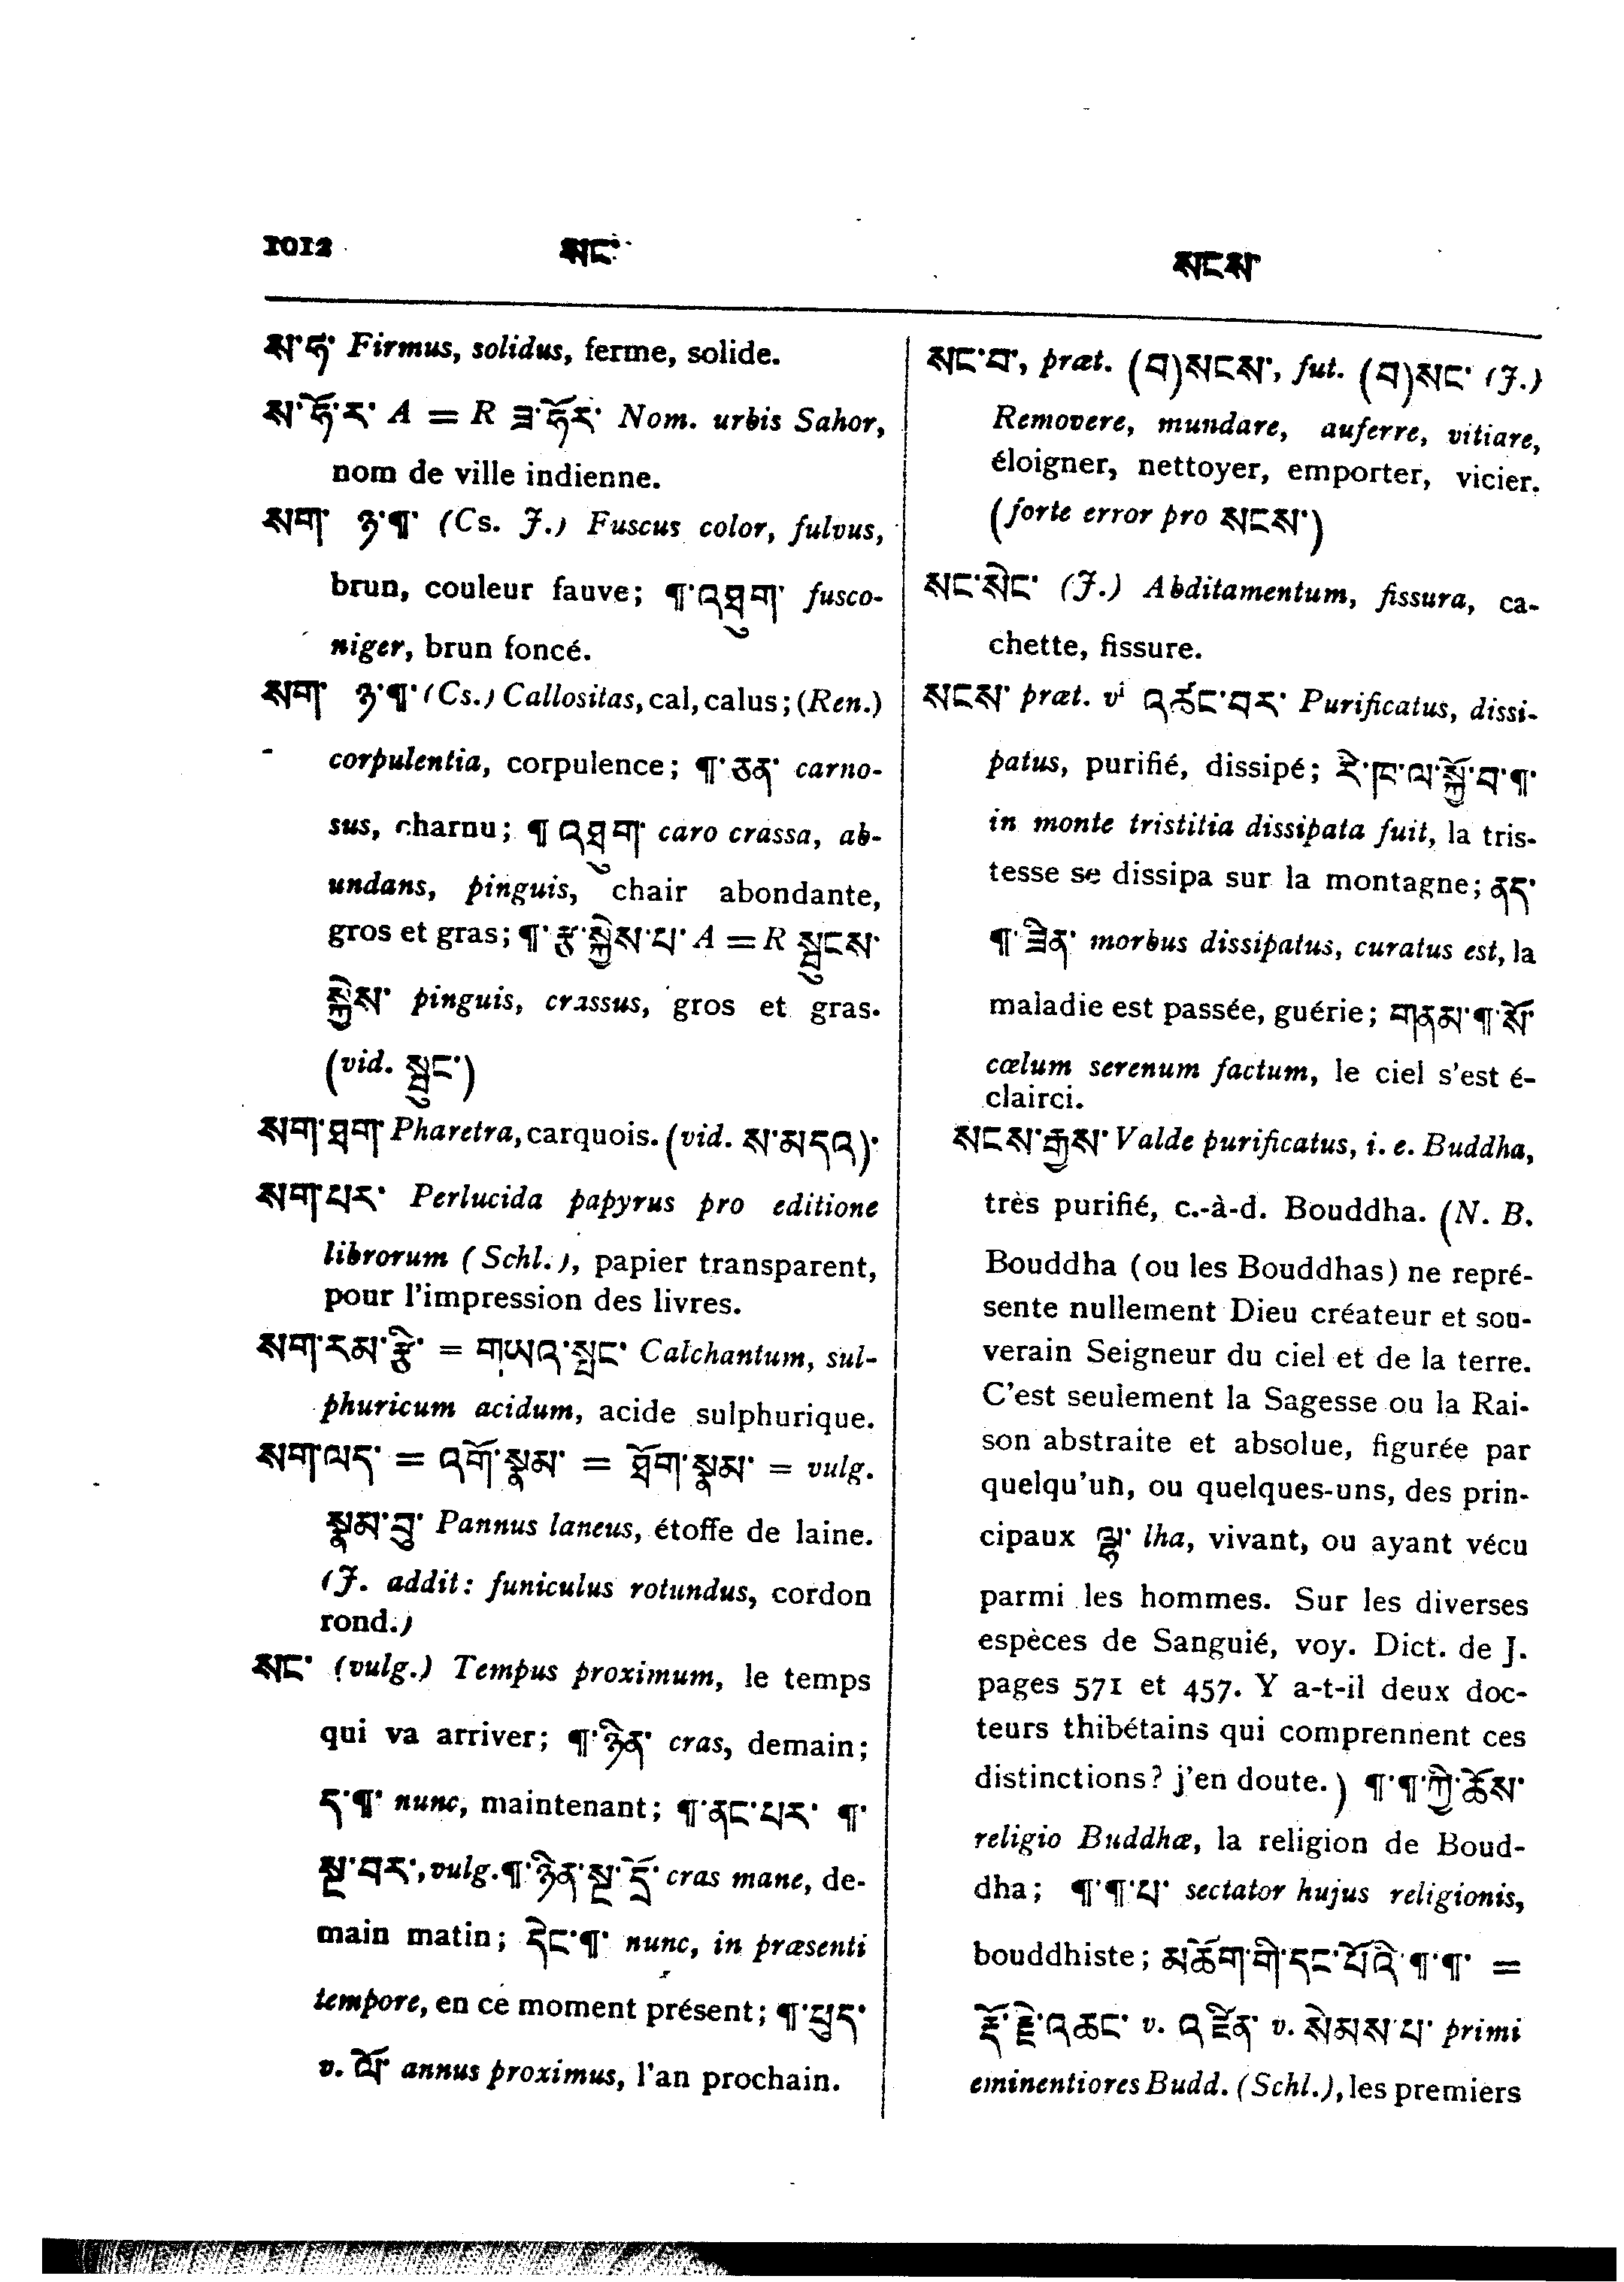 1012 སང་ སངས་
ས་ཧ་ Firmus, solidus, ferme, solide.
ས་ཧོ་ར་ A = R ཟ་ཧོར་ Nom. urbis Sahor,
nom de ville indienne.
སག་ ཉ་¶་ (Cs. J.) Fuscus color, fulvus,
brun, couleur fauve; ¶་འཐུག་ fusco-
niger, brun foncé.
སག་ ཉ་¶་ (Cs.) Callositas, cal, calus; (Ren.)
corpulentia, corpulence; ¶་ཅན་ carno-
sus, charnu; ¶་འཐུག་ caro crassa, ab-
undans, pinguis, chair abondante,
gros et gras; ¶་རྩ་སྐྱེས་པ་ A = R སྤུངས་
སྐྱེས་ pinguis, crassus, gros et gras.
(vid. སྤུང་)
སག་ཐག་ Pharetra, carquois. (vid. ས་མདའ)་
སག་པར་ Perlucida papyrus pro editione
librorum (Schl.), papier transparent,
pour l'impression des livres.
སག་རམ་རྩི་ = གཡའ་སྤང་ Calchantum, sul-
phuricum acidum, acide sulphurique.
སག་ལད་ = འགོ་སྣམ་ = ཐོག་སྣམ་ = vulg.
སྣམ་བུ་ Pannus laneus, étoffe de laine.
(J. addit: funiculus rotundus, cordon
rond.)
སང་ (vulg.) Tempus proximum, le temps
qui va arriver; ¶་ཉིན་ cras, demain;
ད་¶་ nunc, maintenant; ¶་ནང་པར་ ¶་
སྔ་བར་, vulg. ¶་ཉིན་སྔ་དྲོ་ cras mane, de-
main matin; དེང་¶་ nunc, in præsenti
tempore, en ce moment présent; ¶་ཕུད་
v. ལོ་ annus proximus, l'an prochain.
སང་བ་, præt. (བ)སངས་, fut. (བ)སང་ (J.)
Removere, mundare, auferre, vitiare,
éloigner, nettoyer, emporter, vicier.
(forte error pro སངས་)
སང་སེང་ (J.) Abditamentum, fissura, ca-
chette, fissure.
སངས་ præt. vi འཚང་བར་ Purificatus, dissi-
patus, purifié, dissipé; རི་ཁ་ལ་སྐྱོ་བ་¶་
in monte tristitia dissipata fuit, la tris-
tesse se dissipa sur la montagne; ནད་
¶་ཟིན་ morbus dissipatus, curatus est, la
maladie est passée, guérie; གནམ་¶་སོ་
cœlum serenum factum, le ciel s'est é-
clairci.
སངས་རྒྱས་ Valde purificatus, i. e. Buddha,
très purifié, c.-à-d. Bouddha. (N. B.
Bouddha (ou les Bouddhas) ne repré-
sente nullement Dieu créateur et sou-
verain Seigneur du ciel et de la terre.
C'est seulement la Sagesse ou la Rai-
son abstraite et absolue, figurée par
quelqu'un, ou quelques-uns, des prin-
cipaux ལྷ་ lha, vivant, ou ayant vécu
parmi les hommes. Sur les diverses
espèces de Sanguié, voy. Dict. de J.
pages 571 et 457. Y a-t-il deux doc-
teurs thibétains qui comprennent ces
distinctions? j'en doute.) ¶་¶་ཀྱི་ཆོས་
religio Buddhæ, la religion de Boud-
dha; ¶་¶་པ་ sectator hujus religionis,
bouddhiste; མཆོག་གི་དང་པོའི་¶་¶་ =
རྡོ་རྗེ་འཆང་ v. འཛིན་ v. སེམས་པ་ primi
eminentiores Budd. (Schl.), les premiers